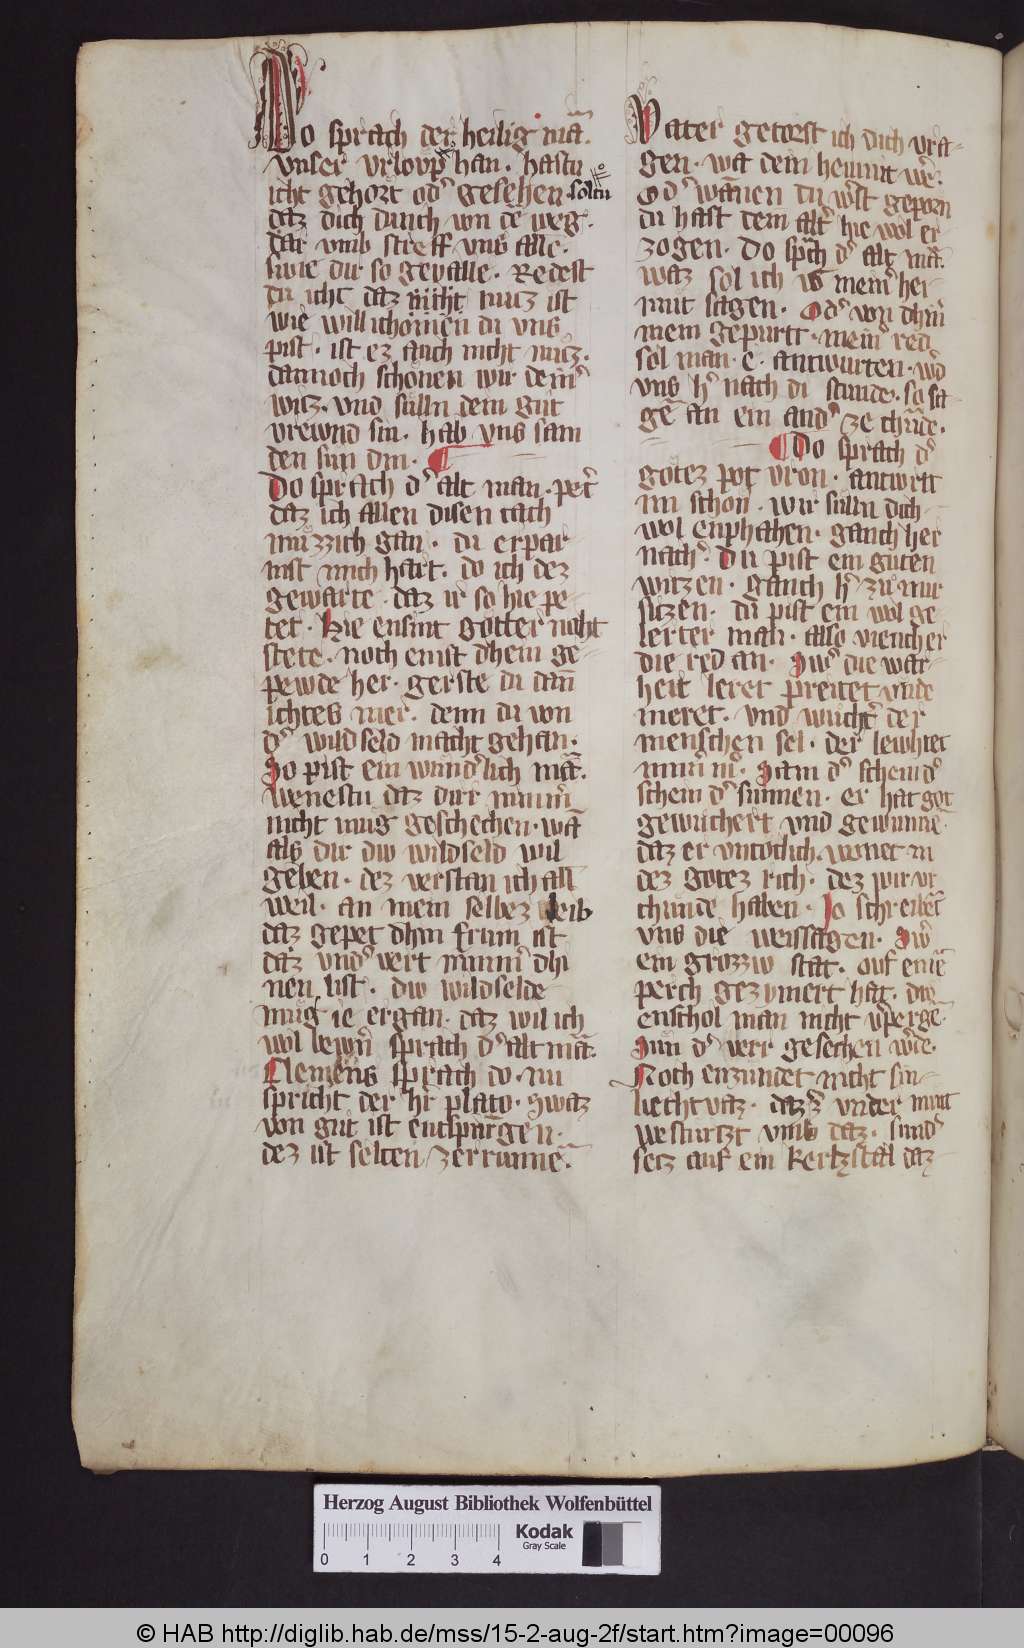 Do sprach der heilig mā.
vnser vrloup han. hastu
icht gehort od' gesehen. soltu
daz dich dunch von dē weg.
dar vmb streff vns alle.
swie dir so gevalle. Redest
du icht daz nicht nucz ist
wie willichomen du vns
pist. ist ez auch nicht nucz.
dannoch schonen wir dein'
wicz. vnd sulln dem gut
vrewnd sin. hab vns sam
den sun din.
Do sprach d' alt man. pet'
daz ich allen disen tach
muzzich gan. du erpar-
mst mich hart. do ich dez
gewarte. daz ir so hie pe-
tet. Hie ensint gotter noht
stete. noch einst dhein ge-
pewde her. gerste du dan̄
ichtes mer. denn du von
d' wildseld macht gehan.
So pist ein wund'lich mā.
wenestu daz dirr nimm'
nicht mug geschechen. wā
als dir div wildseld wil
geben. dez verstan ich all
weil. an mein selbez leib
daz gepet dhin frum ist
daz vnd' vert nimm' dhi
nen list. div wildselde
mug ie ergan. daz wil ich
wol bewn̄ sprach d' alt mā.
Clemens sprach do. nu
spricht der hr̄ plato. Swaz
von gut ist entsprūgen.
dez ist selten zerrunnē.
Vater getorst ich dich vra-
gen. wa dein heimut wer̄.
Od' wānen du w'st geporn
du hast dem alt' hie wol er
zogen. Do sp̄ch d' alt mā.
waz sol ich vō mein' her-
mut sagen. Od' von dhin̄
mein gepurtt. mein' red
sol man. e. antwurten. w'd
vns h' nach di stunde. so sa-
gē an ein and' ze chūde.
Do sprach d'
gotez pot vron. antwrtt
im schon. wir sulln dich
wol enphahen. ganch her
nach'. Du pist ein guten
witzen. ganch h' zu mir
siczen. du pist ein wol ge-
lerter man. also viencher
die red an. Sw' die war-
heit leret preitet vnde
meret. vnd wucht' der
menschen sel. der lewhtet
nim̄ m'. Sam d' schein d'
schein d' sunnen. er hat got
gewuchert vnd gewunnē.
daz er vntotlich. wonet in
dez gotez rich. dez wir vr
chunde haben. Jo schreibēt
vns die weissagen. Sw'
ein grozziv stat. ouf einē
perch gezimert hat. div
enschol man nicht v'perge.
Sun d' verr gesechen w'de.
Noch enzundet nicht sin
liecht vaz. daz'z vnder mutt
westurtzt vmb daz. sund'
secz auf ein kertzstal daz
Herzog August Bibliothek Wolfenbüttel
0 1 2 3 4
Kodak
Gray Scale
© HAB http://diglib.hab.de/mss/15-2-aug-2f/start.htm?image=00096